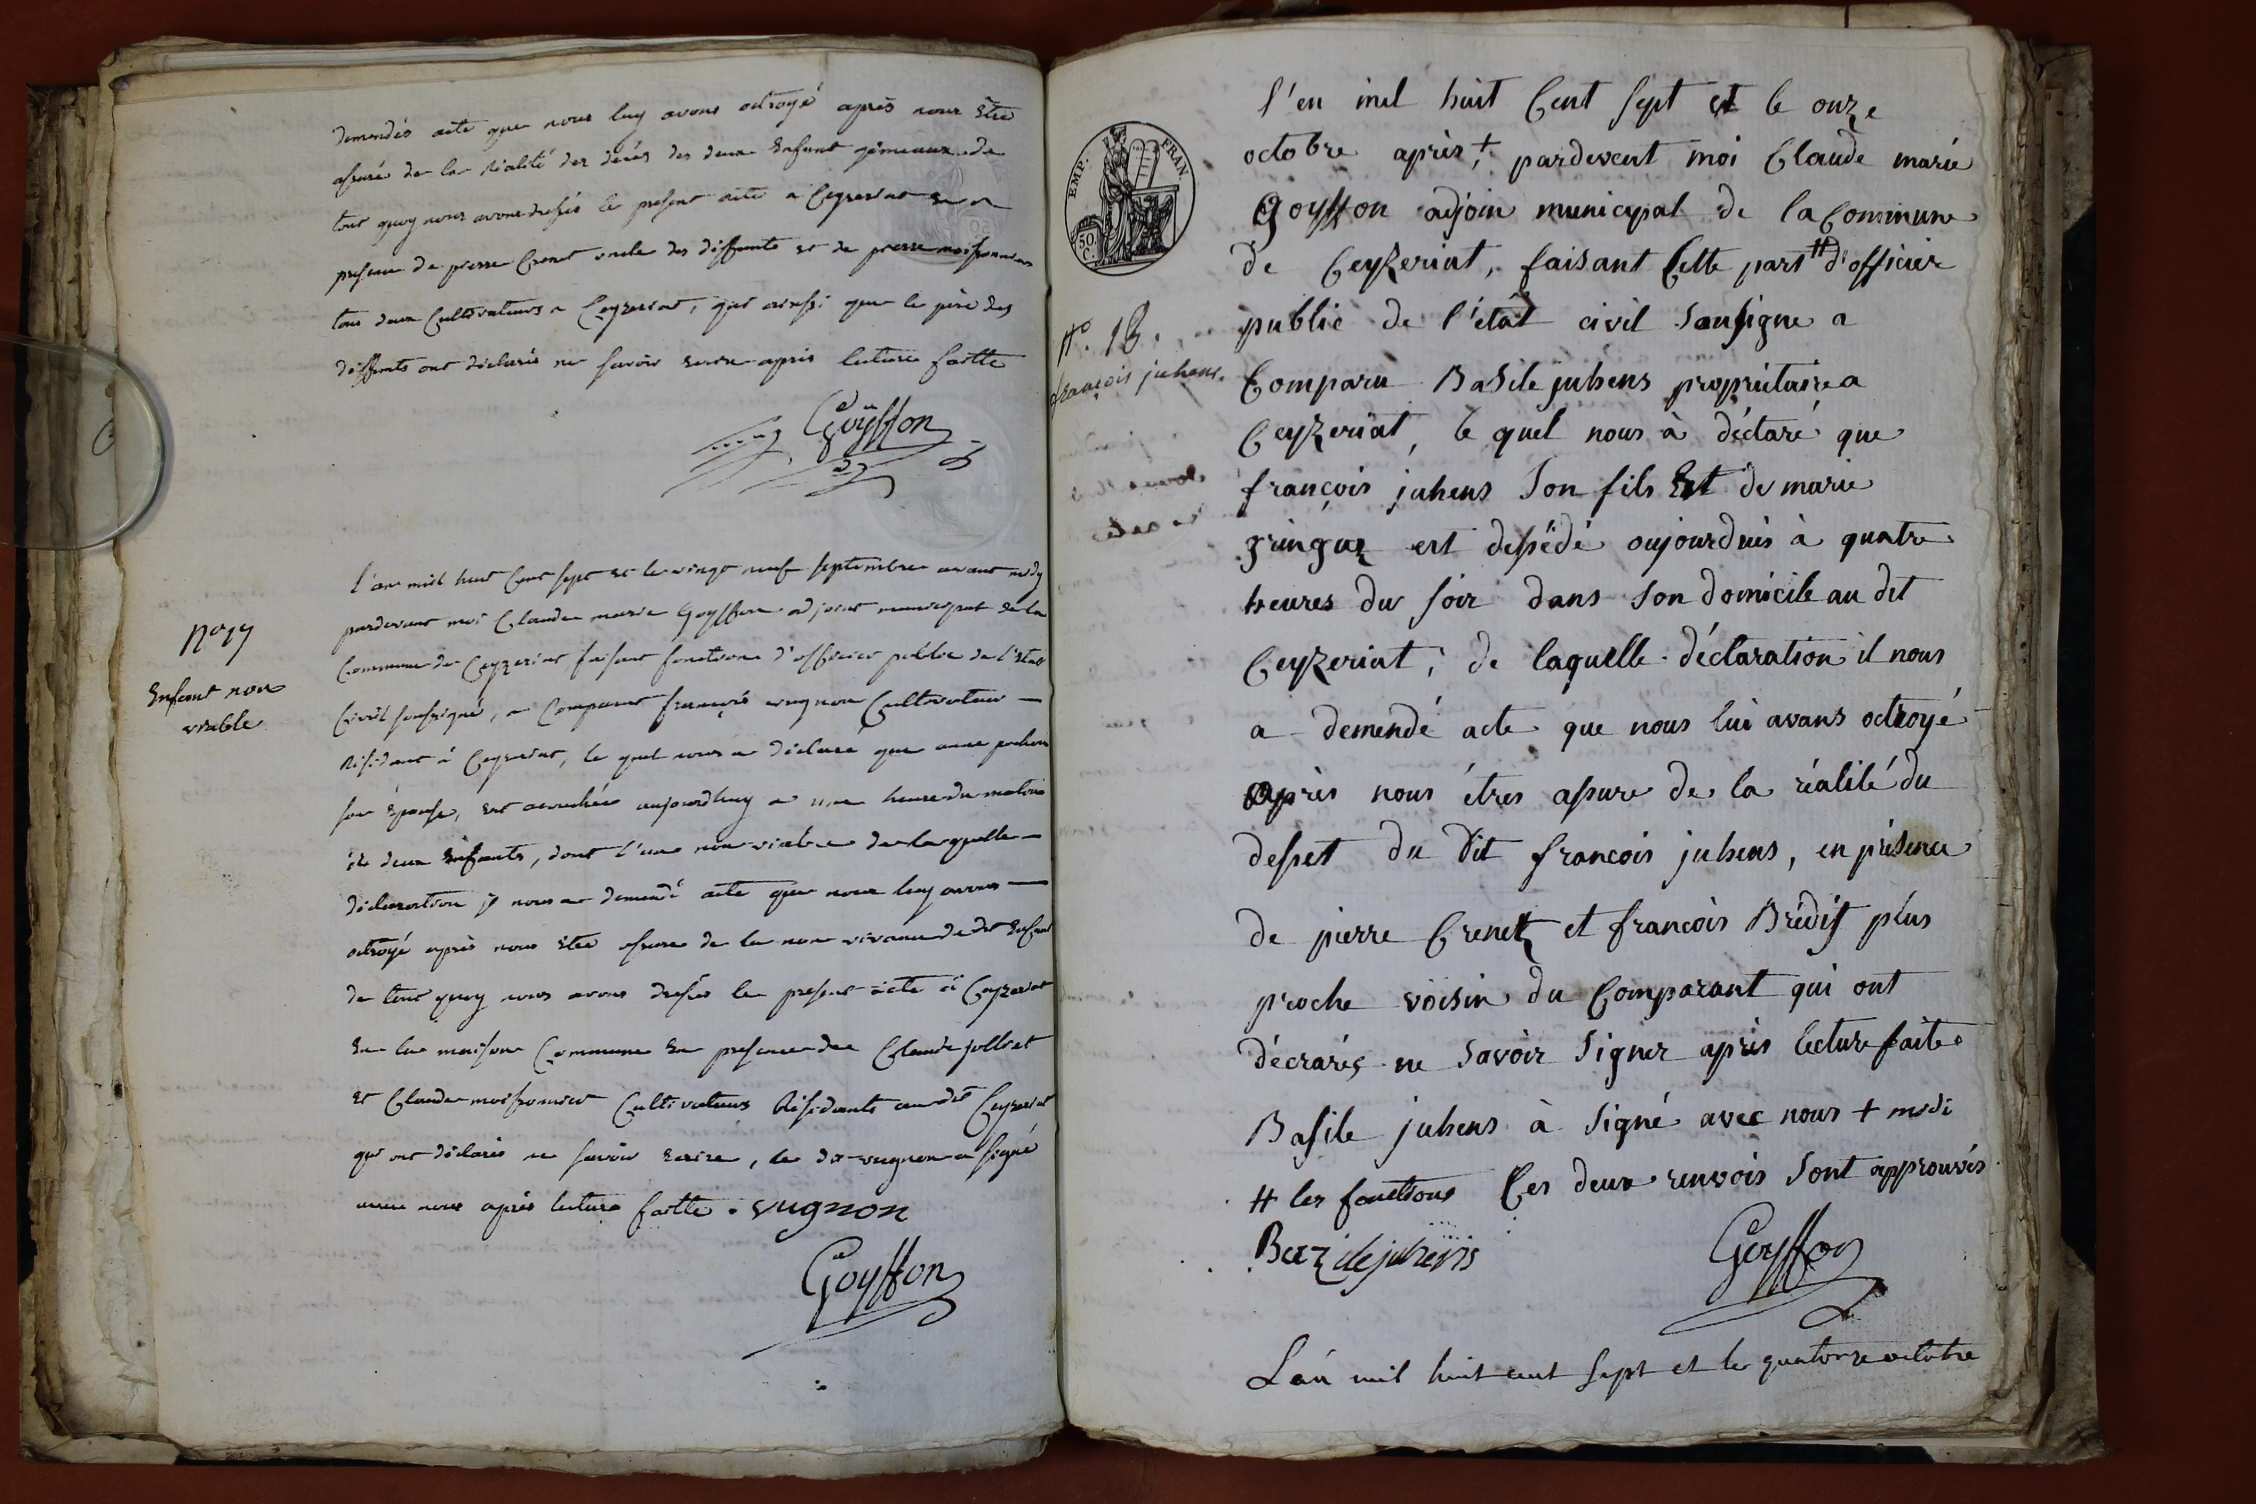 demendés acte que nous luy avons octroyé après nous être
assuré de la réalité des décès des deux Enfant gémeaux de
tout quoy nous avons dressés le present acte a Ceyzeriat en
presence de pierre Crenet oncle des deffunts et de pierre moissonnier
tous deux Cultivateurs a Ceyzeriat, qui ainssi que le père des
deffunts ont déclarés ne savoir Ecrire après lecture faitte
Goÿffon
l'an mil huit Cent sept et le vingt neuf septembre avant midy
pardevant moi Claude marie Goyffon adjoint municipal de la
Commune de Ceyzeriat faisant fonctions d'officier public de l'Etat
Civil soussigné, a Comparut françois vugnon Cultivateur
Résidant à Ceyzeriat, le quel nous a déclaré que anne pochon
son Epouse, est accouchée aujourdhuy a une heure du matin
de deux Enfants, dont l'un non viable de laquelle
déclaration il nous a demendé acte que nous luy avons
octroyé après nous être assuré de la non vivance du dit Enfant
de tout quoy nous avons dressés le present acte à Ceyzeriat
En la maison Commune En presence de Claude jolliet
et Claude moissonnier Cultivateurs Résidants au dit Ceyzeriat
qui ont déclarés ne savoir Ecrire, le dit vugnon a signé
avec nous après lecture faitte . vugnon
Goyffon
No 17
Enfant non
viable
EMP. FRAN.
50. C.
No. 18.
françois juhens.
l'en mil huit Cent sept et le onze
octobre après + pardevent moi Claude marie
Goyffon adjoin municipal de la Commune
de Ceyzeriat, faisant Cette part # d'officier
public de l'etât civil Sousigne a
Comparu Basile juhens propriétaire a
Ceyzeriat, le quel nous à déclaré que
françois juhens Son fils Est de marie
gringoz est dessédé oujourduis à quatre
heures du soir dans son domicile au dit
Ceyzeriat, de laquelle déclaration il nous
a demendé acte que nous lui avans octroyé
après nous êtres assure de la réalité du
desset du dit françois juhens, en présence
de pierre Crenet et francois Brédif plus
proche voisin du Comparant qui ont
décrarés ne Savoir Signer après lecture faite.
Basile juhens à Signé avec nous + midi
# les fonctions Ces deux renvois Sont approuvés
Bazile juhens
Goyffon
L'an mil huit cent sept et le quatorze octobre